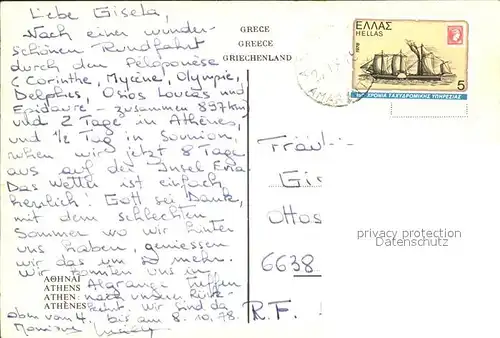 Liebe Gisela,
Nach einer wunder-
schönen Rundfahrt
durch den Péloponèse
(Corinthe, Mycène, Olympie,
Delphes, Osios Loucas und
Epidaure - zusammen 897km)
und 2 Tage in Athènes,
und 1/2 Tag in Sounion,
ruhen wir jetzt 8 Tage
aus auf der Insel Evia.
Das Wetter ist einfach
herrlich! Gott sei Dank,
mit dem schlechten
Sommer wo wir hinter
uns haben, geniessen
wir das um so mehr.
Wir könnten uns in
Algrange treffen
nach unsern Rück-
Wir sind da
oben vom 4. bis am 8.10.78.
Monique
ΑΘΗΝΑΙ
ATHENS
ATHEN
ATHÈNES
GRECE
GREECE
GRIECHENLAND
ΕΛΛΑΣ
HELLAS
1978
5
ΧΡΟΝΙΑ ΤΑΧΥΔΡΟΜΙΚΗΣ ΥΠΗΡΕΣΙΑΣ
Fräul
Gis
Ottos
6638
R.F.
privacy protection
Datenschutz